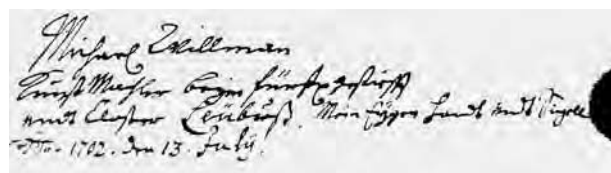 Michael Willman
Kunst Mahler beÿm fürstl gestiefft
undt Closter Leübuß. Mein Eÿgen Handt undt Sigell
1702. den 13. Julÿ.